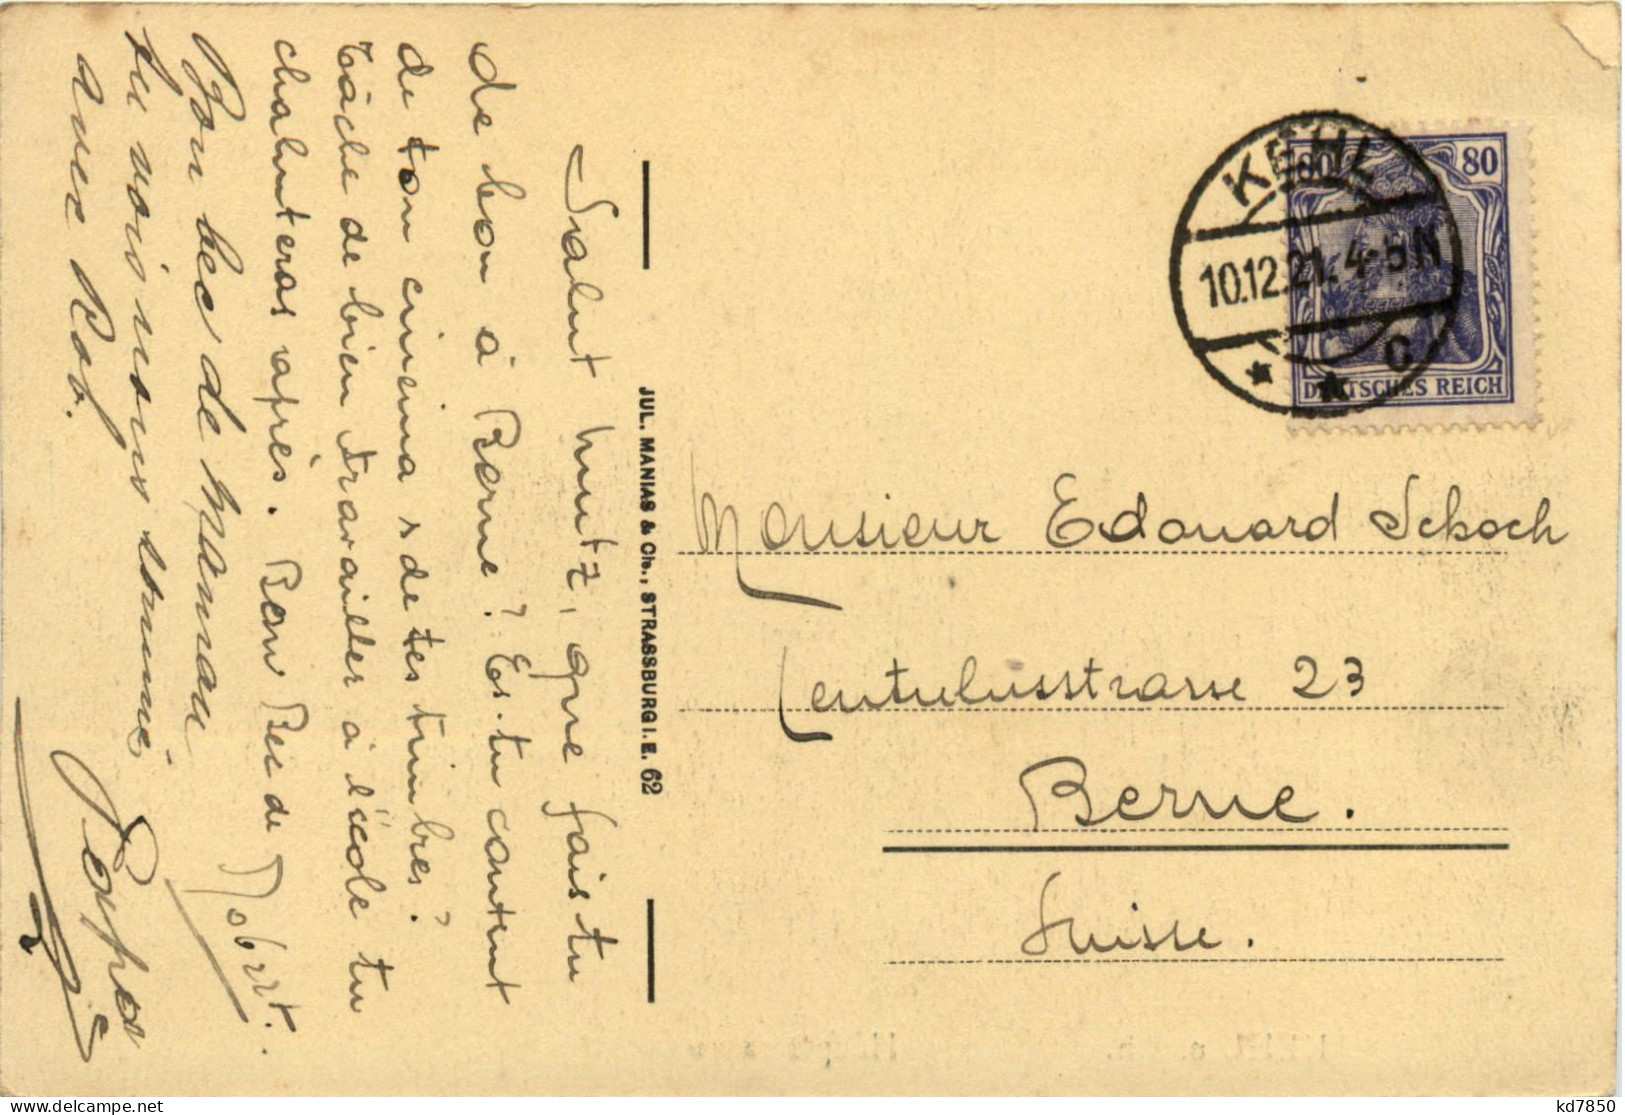 Salut mutz, que fais tu
de bon à Berne? Es-tu content
de ton cinema & de tes timbres?
Tâche de bien travailler à l'école tu
chahuteras après. Bon Bec de Robert.
Bon bec de Maman
tu vois nous sommes
avec Rob. Papa
JUL. MANIAS & Cie., STRASSBURG I. E. 62
KEHL
10.12.21. 4-5 N
* * C
80 80
DEUTSCHES REICH
Monsieur Edouard Schoch
Lentulusstrasse 23
Berne.
Suisse.
kd7850